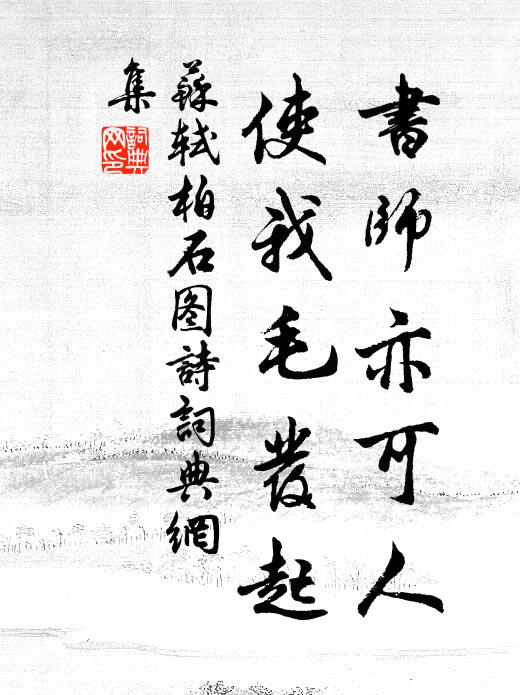 書師亦可人
使我毛發起
蘇軾柏石图詩詞典網
集
詞典网印